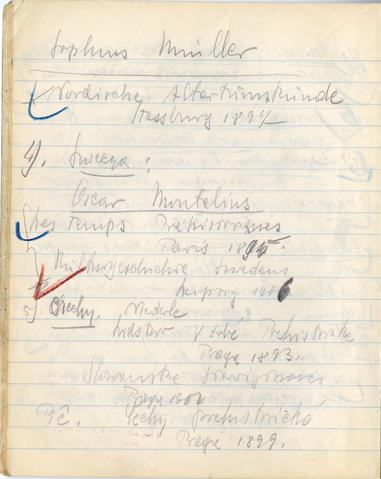 Sophus Müller
Nordische Altertumskunde
Strassburg 1897
4). Szwecya :
Oscar Montelius
Les Temps Préhistoriques
Paris 1895
Kulturgeschichte Swedens
Leipzig 1906
5) Czechy. Niederle
Lidstvo v době
Praga 1893.
Slovanské
Praga 1902
Píč. Čechy předhistorické
Praga 1899.